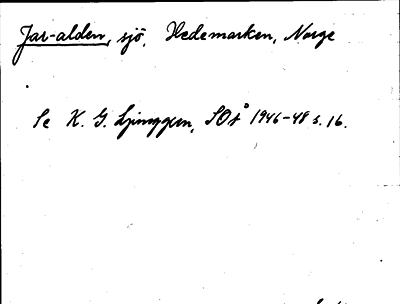 Jar-alden, sjö, Hedemarken, Norge
Se K. G. Ljunggren, SOÅ 1946-48 s. 16.